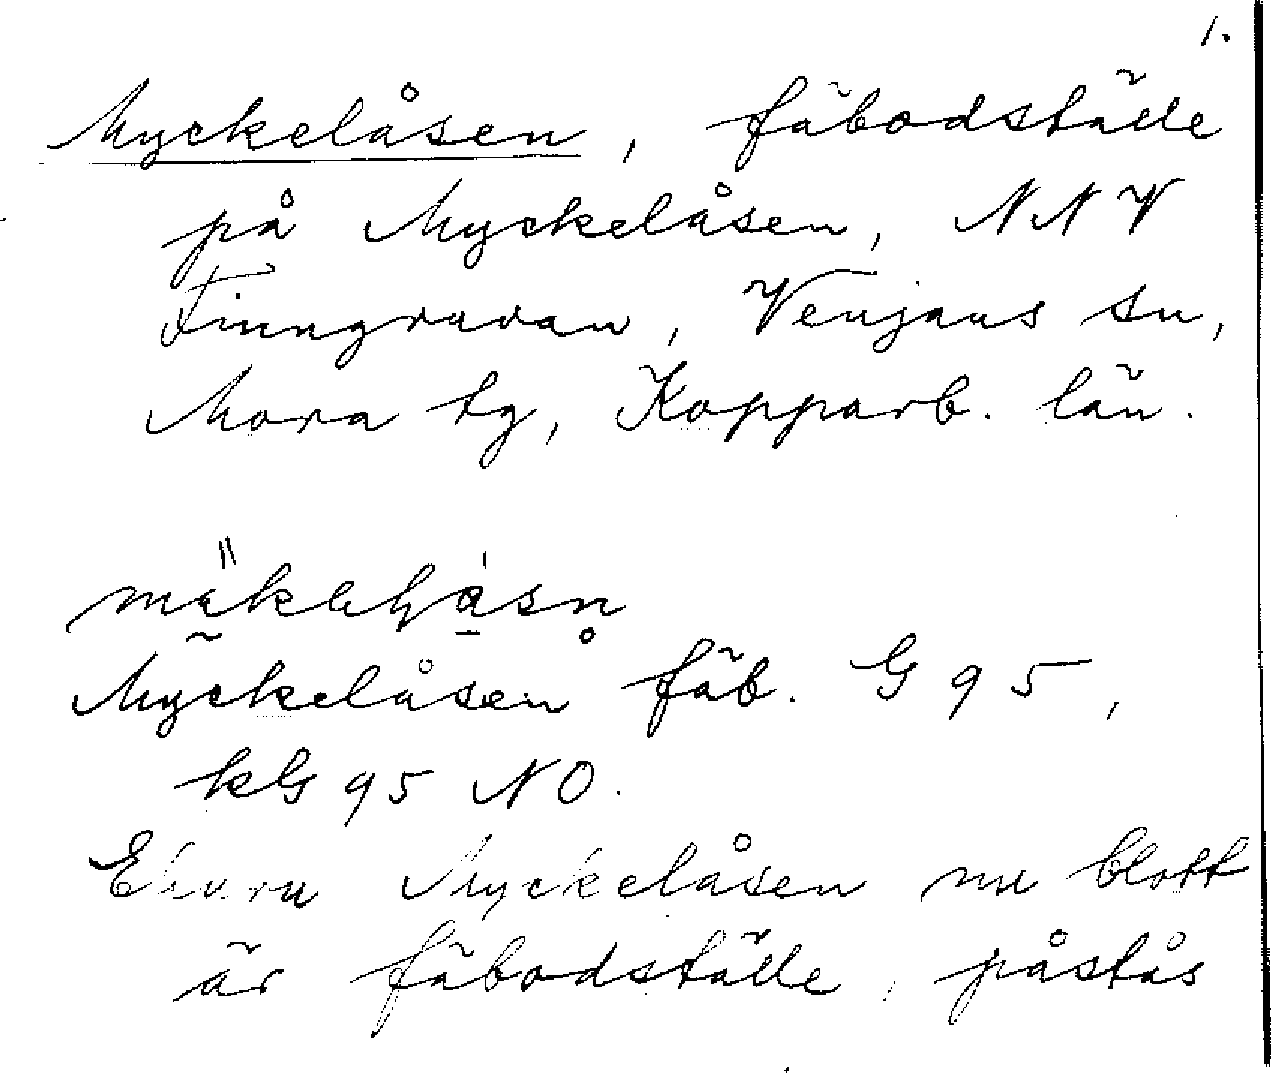 1.
Myckelåsen, fäbodställe
på Myckelåsen, NNV
Finngruvan, Venjans sn,
Mora tg, Kopparb. län.
Myckelåsen fäb. G 95,
kG 95 NO.
Ehuru Myckelåsen nu blott
är fäbodställe, påstås